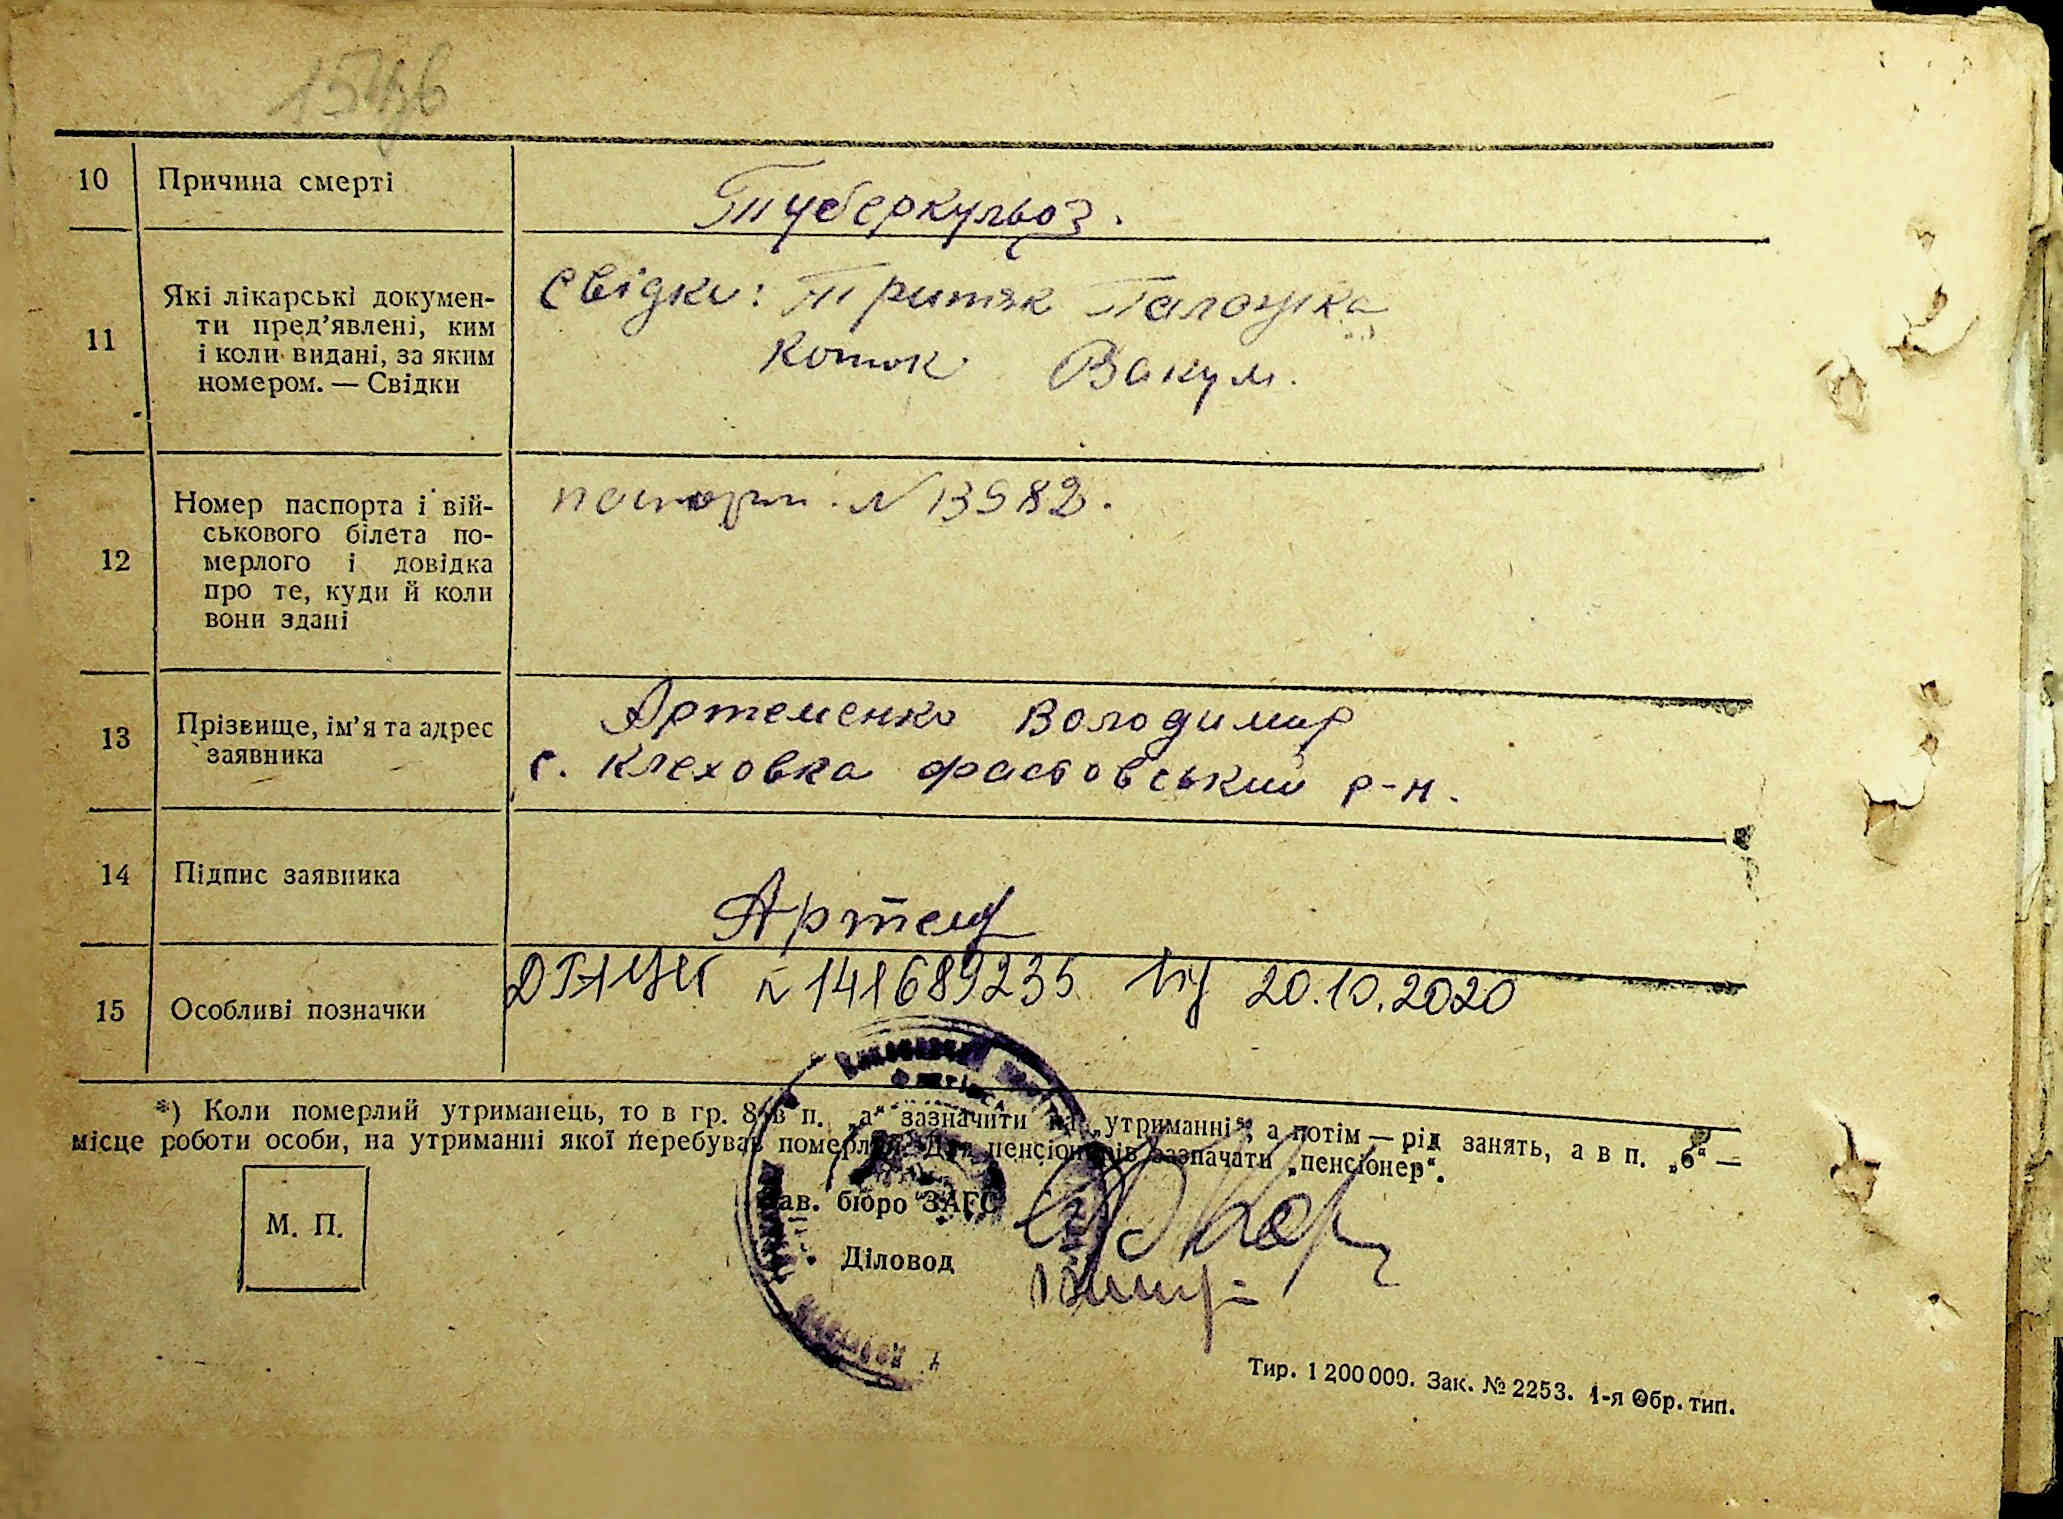 10 Причина смерті
Туберкульоз.
11 Які лікарські докумен-
ти пред'явлені, ким
і коли видані, за яким
номером. — Свідки
Свідки: Притяк Палажка
Коток Вакум.
12 Номер паспорта і вій-
ськового білета по-
мерлого і довідка
про те, куди й коли
вони здані
паспорт. N 13982.
13 Прізвище, ім'я та адрес
заявника
Артеменко Володимир
с. Клеховка фастовський р-н.
14 Підпис заявника
Артем
15 Особливі позначки
N 141689235 від 20.10.2020
*) Коли померлий утриманець, то в гр. 8 в п. „а“ зазначити на „утриманні“, а потім — рід занять, а в п. „б“ —
місце роботи особи, на утриманні якої перебував померлий. Для пенсіонерів зазначати „пенсіонер“.
М. П.
Зав. бюро ЗАГС
Діловод
Тир. 1 200 000. Зак. № 2253. 1-я Обр. тип.